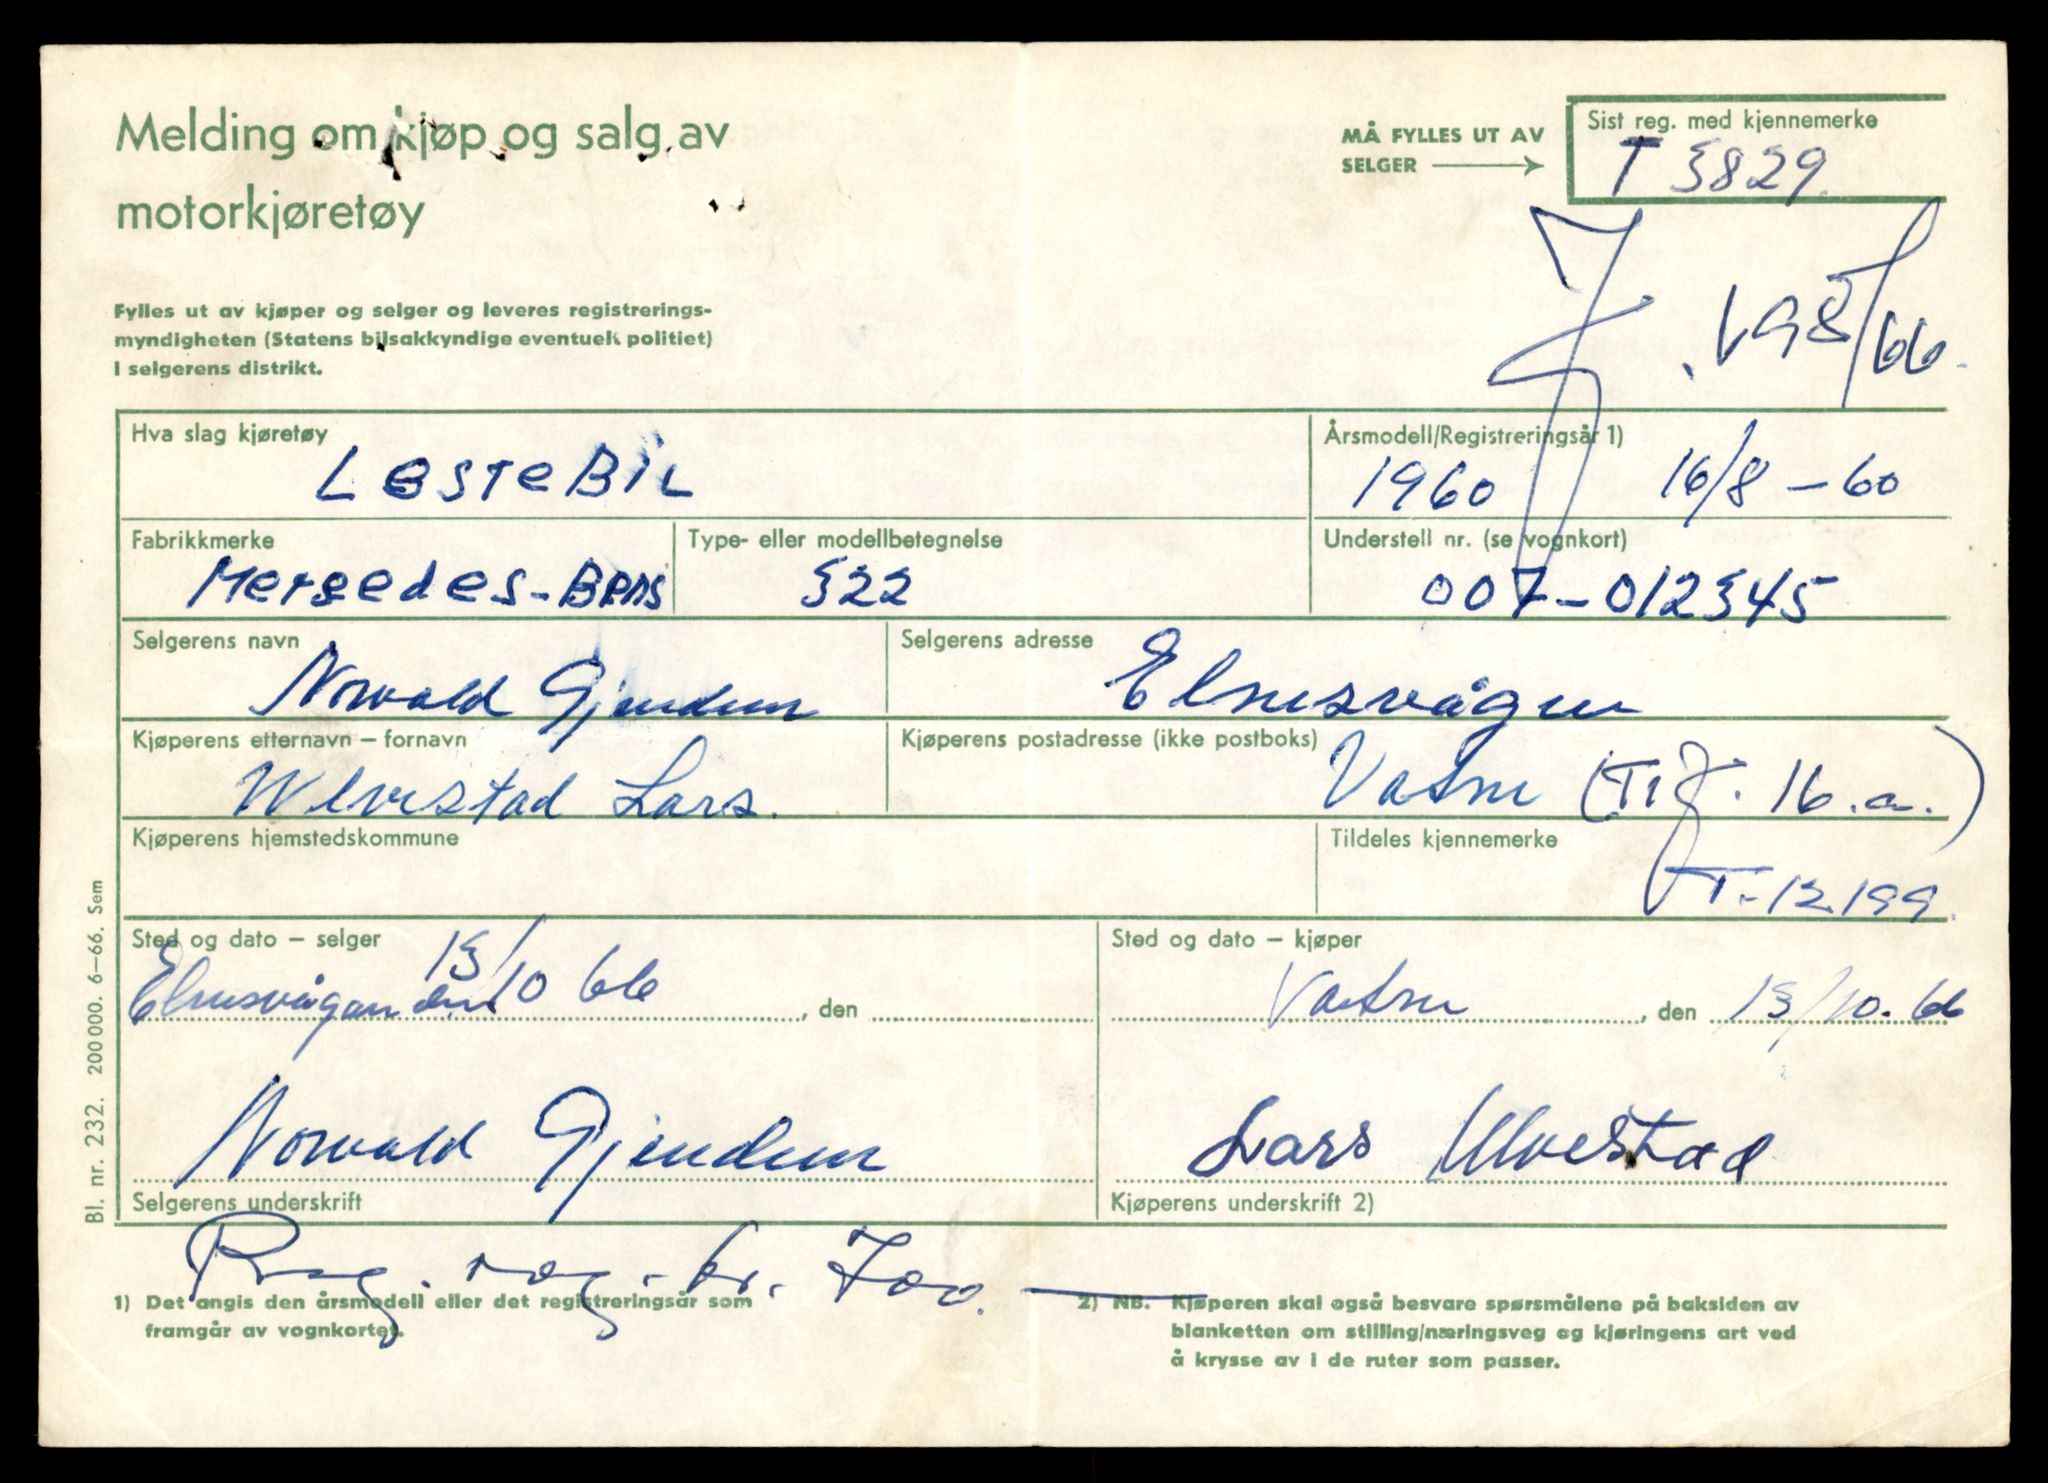 Melding om kjøp og salg av
motorkjøretøy
MÅ FYLLES UT AV
SELGER
Sist reg. med kjennemerke
T 3829.
Fylles ut av kjøper og selger og leveres registrerings-
myndigheten (Statens bilsakkyndige eventuelt politiet)
i selgerens distrikt.
Hva slag kjøretøy
LasteBiL
Årsmodell/Registreringsår 1)
1960 16/8 - 60
Fabrikkmerke
Mersedes-Bens
Type- eller modellbetegnelse
322
Understell nr. (se vognkort)
007-012345
Selgerens navn
Norvald Gjendem
Selgerens adresse
Elnesvågen
Kjøperens etternavn – fornavn
Ulvestad Lars.
Kjøperens postadresse (ikke postboks)
Vatne 16.a.)
Kjøperens hjemstedskommune
Tildeles kjennemerke
T-12199.
Sted og dato – selger
Elnesvågen den 13/10 66, den
Sted og dato – kjøper
Vatne, den 13/10. 66
Norvald Gjendem
Selgerens underskrift
Lars Ulvestad
Kjøperens underskrift 2)
Reg. kr. 700.—
1) Det angis den årsmodell eller det registreringsår som
framgår av vognkortet.
2) NB. Kjøperen skal også besvare spørsmålene på baksiden av
blanketten om stilling/næringsveg og kjøringens art ved
å krysse av i de ruter som passer.
Bl. nr. 232. 200 000. 6–66. Sem